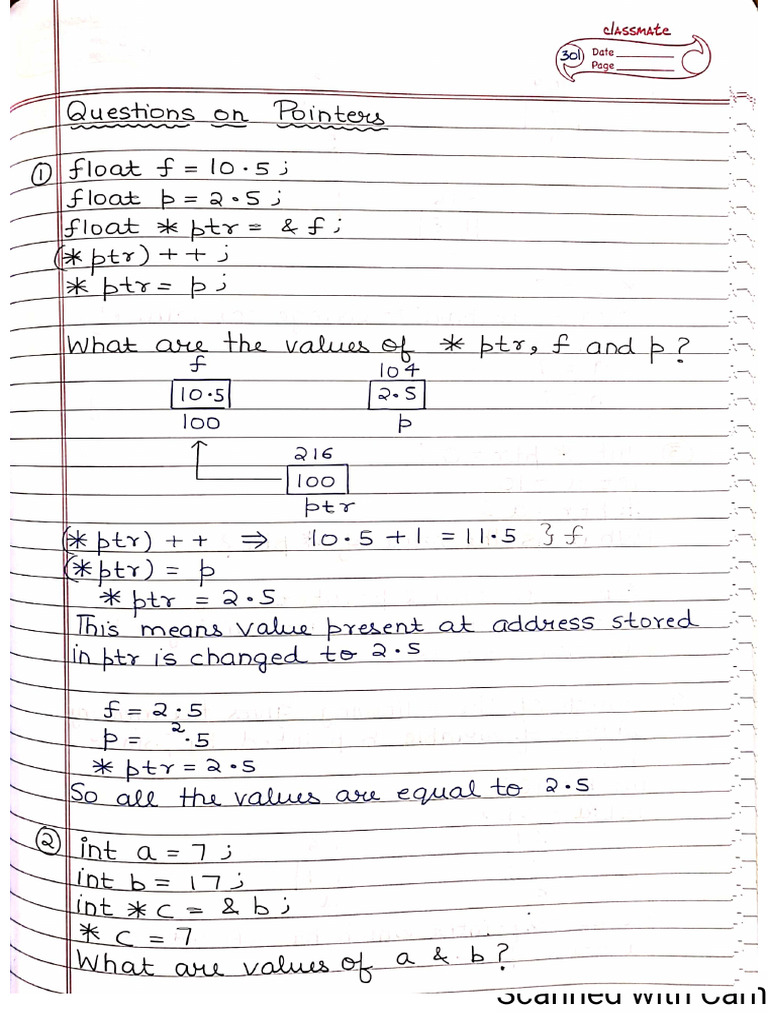 classmate
301 Date
Page
Questions on Pointers
① float f = 10.5;
float p = 2.5;
float * ptr = & f;
(* ptr) + + ;
* ptr = p;
What are the values of * ptr, f and p?
f 104
10.5 2.5
100 p
216
100
ptr
(* ptr) + + ⇒ 10.5 + 1 = 11.5 } f
(* ptr) = p
* ptr = 2.5
This means value present at address stored
in ptr is changed to 2.5
f = 2.5
p = 2.5
* ptr = 2.5
So all the values are equal to 2.5
② int a = 7;
int b = 17;
int * c = & b;
* c = 7
What are values of a & b?
Scanned with Cam